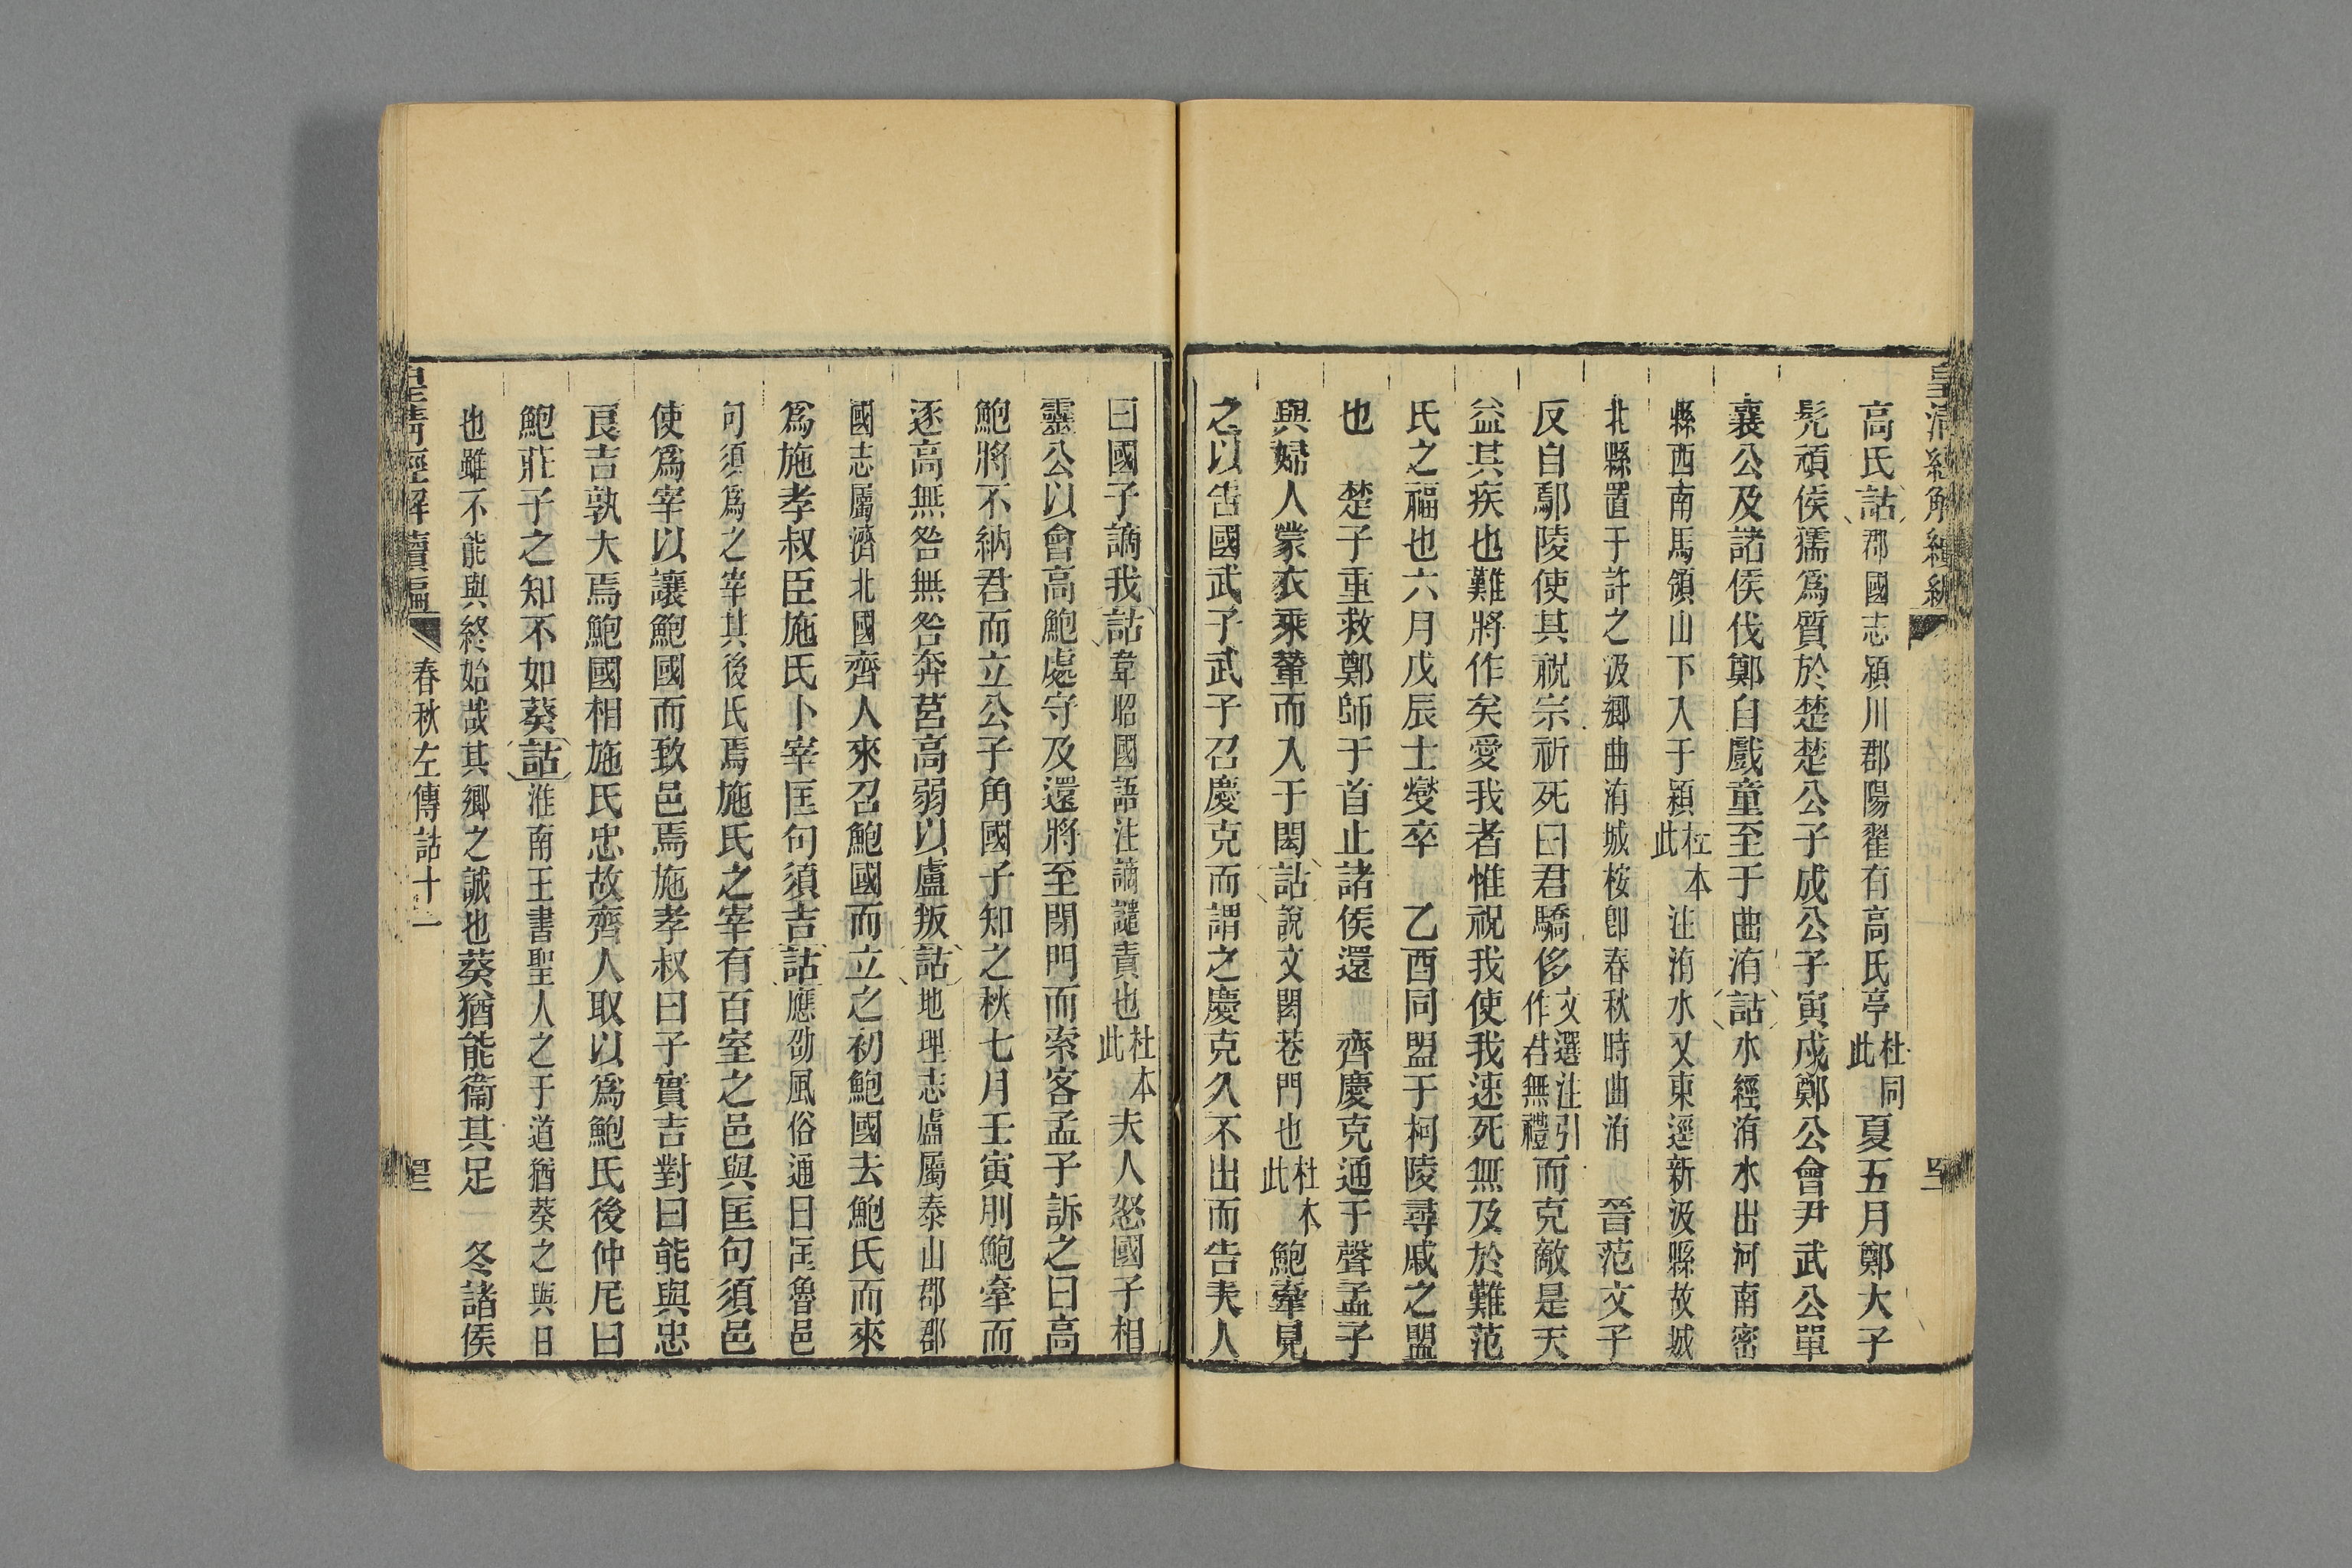 皇清經解續編
高氏詁郡國志潁川郡陽翟有高氏亭杜同此夏五月鄭大子
髠頑侯獳爲質於楚楚公子成公子寅戍鄭公會尹武公單
襄公及諸侯伐鄭自戲童至于曲洧詁水經洧水出河南密
縣西南馬領山下入于潁杜本此注洧水又東逕新汲縣故城
北縣置于許之汲鄉曲洧城桉卽春秋時曲洧 晉范文子
反自鄢陵使其祝宗祈死曰君驕侈文選注引作君無禮而克敵是天
益其疾也難將作矣愛我者惟祝我使我速死無及於難范
氏之福也六月戊辰士燮卒 乙酉同盟于柯陵尋戚之盟
也 楚子重救鄭師于首止諸侯還 齊慶克通于聲孟子
與婦人蒙衣乘輦而入于閎詁說文閎巷門也杜本此鮑牽見
之以告國武子武子召慶克而謂之慶克久不出而告夫人
曰國子謫我詁韋昭國語注謫譴責也杜本此夫人怒國子相
靈公以會高鮑處守及還將至閉門而索客孟子訴之曰高
鮑將不納君而立公子角國子知之秋七月壬寅刖鮑牽而
逐高無咎無咎奔莒高弱以盧叛詁地理志盧屬泰山郡郡
國志屬濟北國齊人來召鮑國而立之初鮑國去鮑氏而來
爲施孝叔臣施氏卜宰匡句須吉詁應劭風俗通曰匡魯邑
句須爲之宰其後氏焉施氏之宰有百室之邑與匡句須邑
使爲宰以讓鮑國而致邑焉施孝叔曰子實吉對曰能與忠
良吉孰大焉鮑國相施氏忠故齊人取以爲鮑氏後仲尼曰
鮑莊子之知不如葵詁淮南王書聖人之于道猶葵之與日
也雖不能與終始哉其鄉之誠也葵猶能衞其足 冬諸侯
皇清經解續編
春秋左傳詁十一